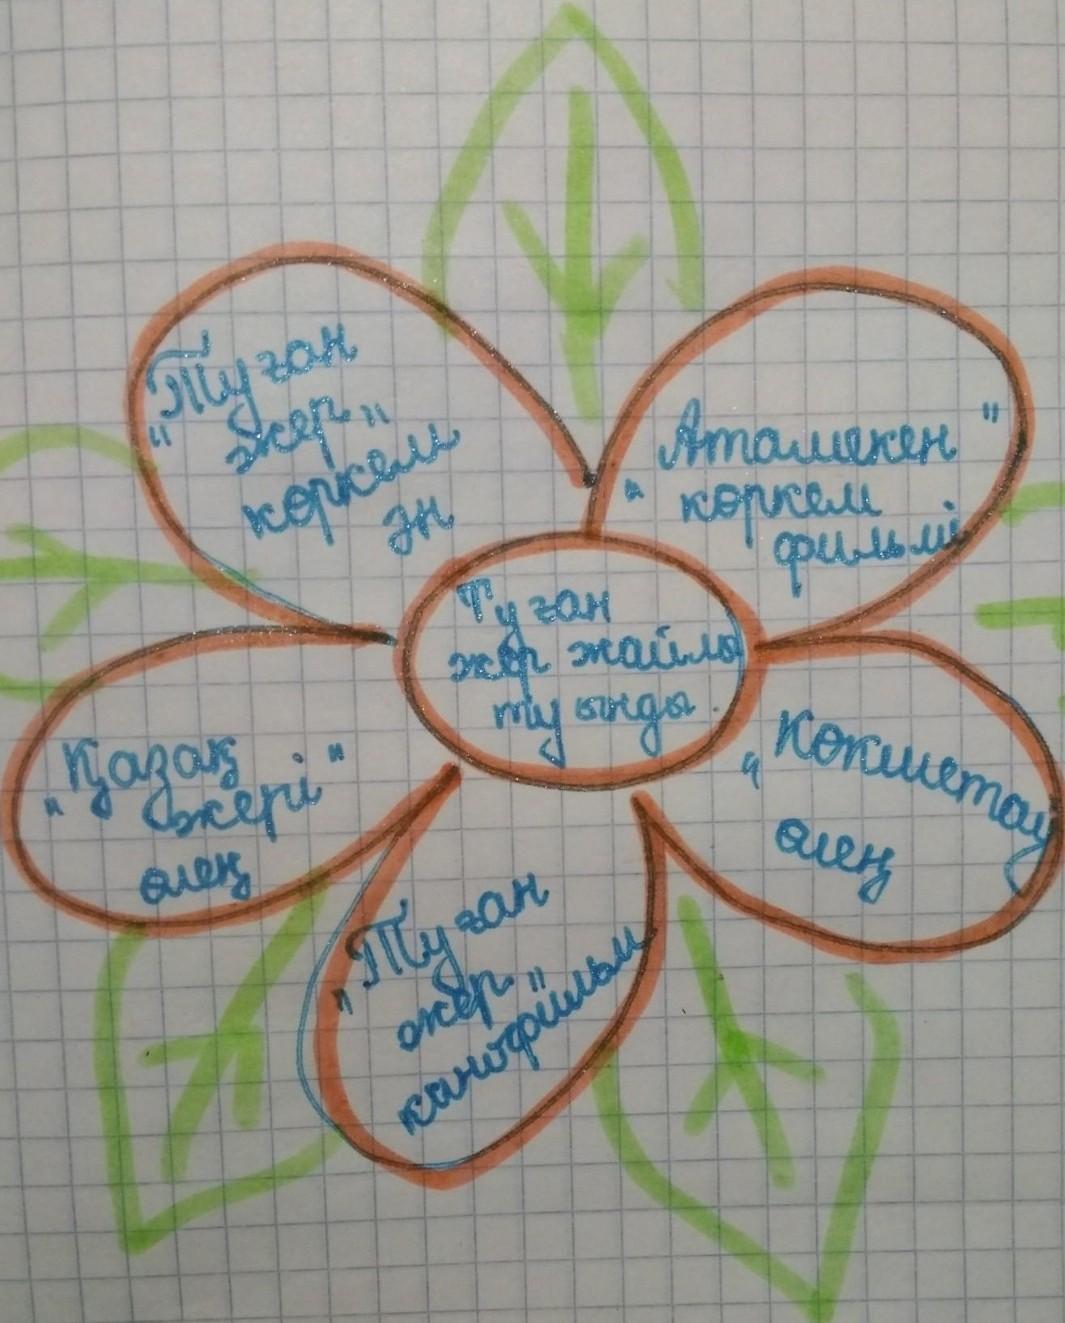 "Туған
жер"
көркем
ән
"Атамекен"
көркем
фильмі
Туған
жер жайлы
туынды.
"Қазақ
жері"
өлең
"Көкшетау
өлең
"Туған
жер"
кинофильм